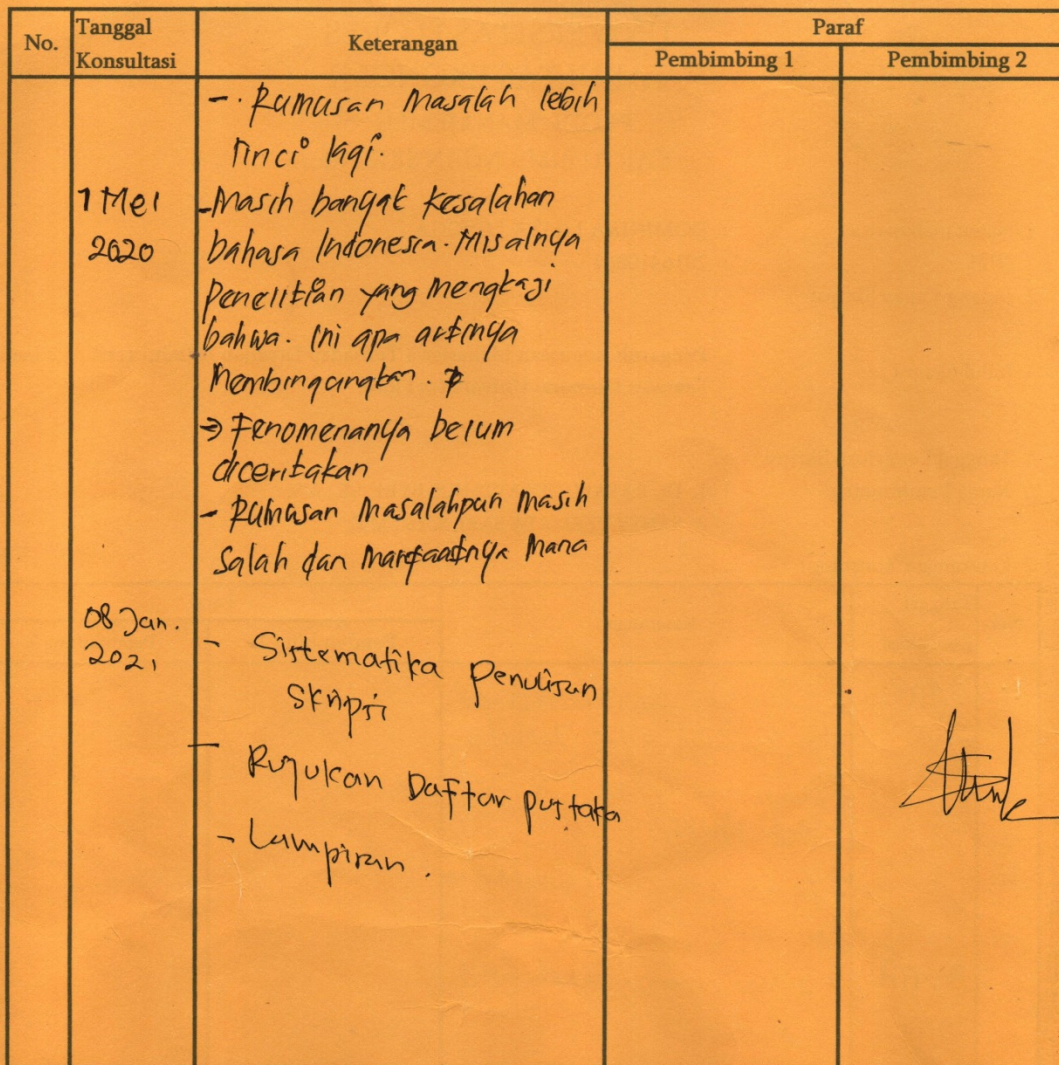 No. Tanggal Konsultasi Keterangan Paraf
Pembimbing 1 Pembimbing 2
-. Rumusan Masalah lebih
rinci lagi.
1 Mei
2020
- Masih banyak kesalahan
bahasa Indonesia. Misalnya
Penelitian yang Mengkaji
bahwa. Ini apa artinya
Membingungkan.
→ Fenomenanya belum
diceritakan
- Rumusan Masalahpun Masih
Salah dan Manfaatnya Mana
08 Jan.
2021
- Sistematika Penulisan
Skripsi
- Rujukan Daftar pustaka
- Lampiran.